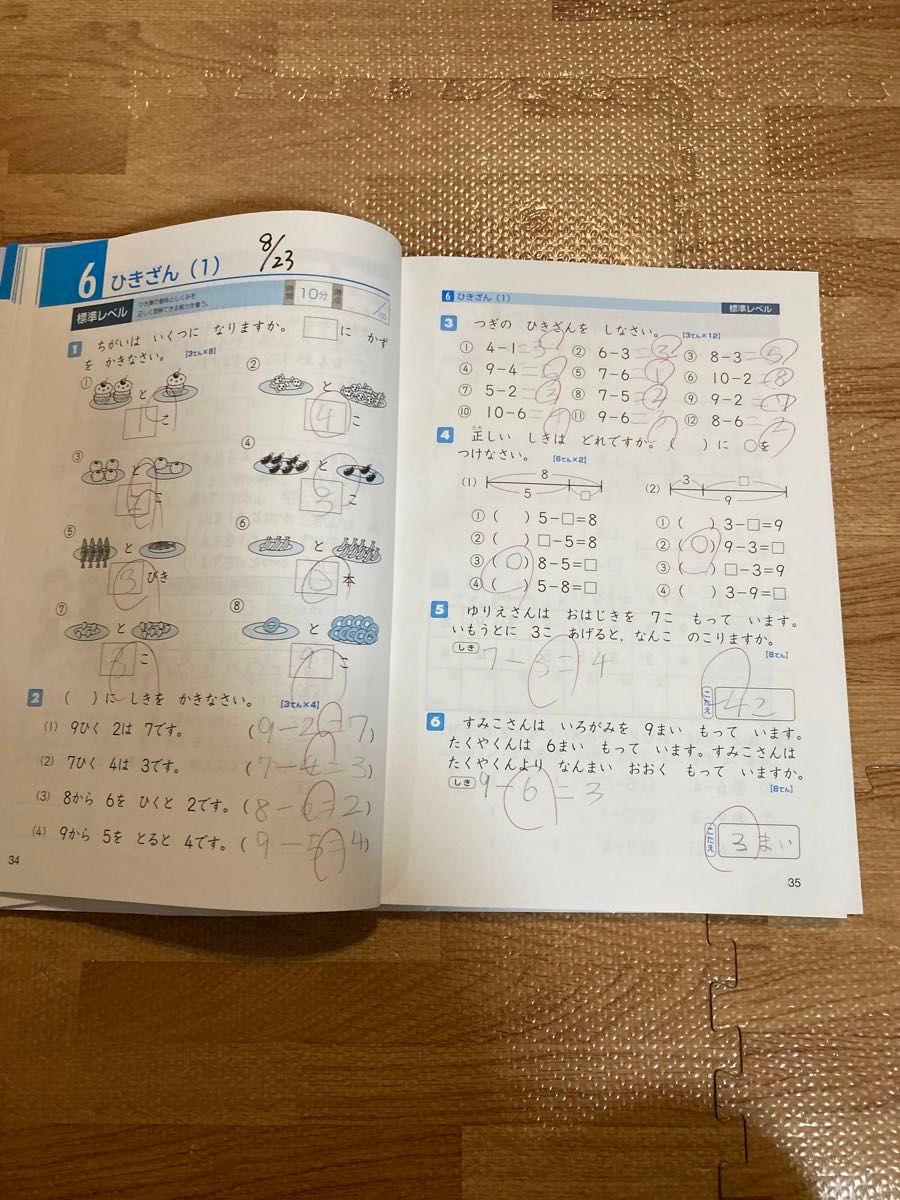 6 ひきざん(1)
8/23
標準レベル
ひき算の意味としくみを
正しく理解できる能力を養う。
時間 10分 得点 /100
1 ちがいは いくつに なりますか。□に かず
を かきなさい。【3てん×8】
① と 1こ
② と 4こ
③ と こ
④ と 3こ
⑤ と 3びき
⑥ と 本
⑦ と 3こ
⑧ と こ
2 ( )に しきを かきなさい。【3てん×4】
(1) 9ひく 2は 7です。(9-2=7)
(2) 7ひく 4は 3です。(7-4=3)
(3) 8から 6を ひくと 2です。(8-6=2)
(4) 9から 5を とると 4です。(9-5=4)
34
6 ひきざん(1)
標準レベル
3 つぎの ひきざんを しなさい。【3てん×12】
① 4-1=3 ② 6-3=3 ③ 8-3=5
④ 9-4= ⑤ 7-6=1 ⑥ 10-2=8
⑦ 5-2=3 ⑧ 7-5=2 ⑨ 9-2=7
⑩ 10-6= ⑪ 9-6= ⑫ 8-6=
4 正しい しきは どれですか。( )に ○を
つけなさい。【6てん×2】
(1) 8 5 □
① ( ) 5-□=8
② ( ) □-5=8
③ (○) 8-5=□
④ ( ) 5-8=□
(2) 3 □ 9
① ( ) 3-□=9
② (○) 9-3=□
③ ( ) □-3=9
④ ( ) 3-9=□
5 ゆりえさんは おはじきを 7こ もって います。
いもうとに 3こ あげると,なんこ のこりますか。
【8てん】
しき 7-3=4
こたえ 4こ
6 すみこさんは いろがみを 9まい もって います。
たくやくんは 6まい もって います。すみこさんは
たくやくんより なんまい おおく もって いますか。
【8てん】
しき 9-6=3
こたえ 3まい
35